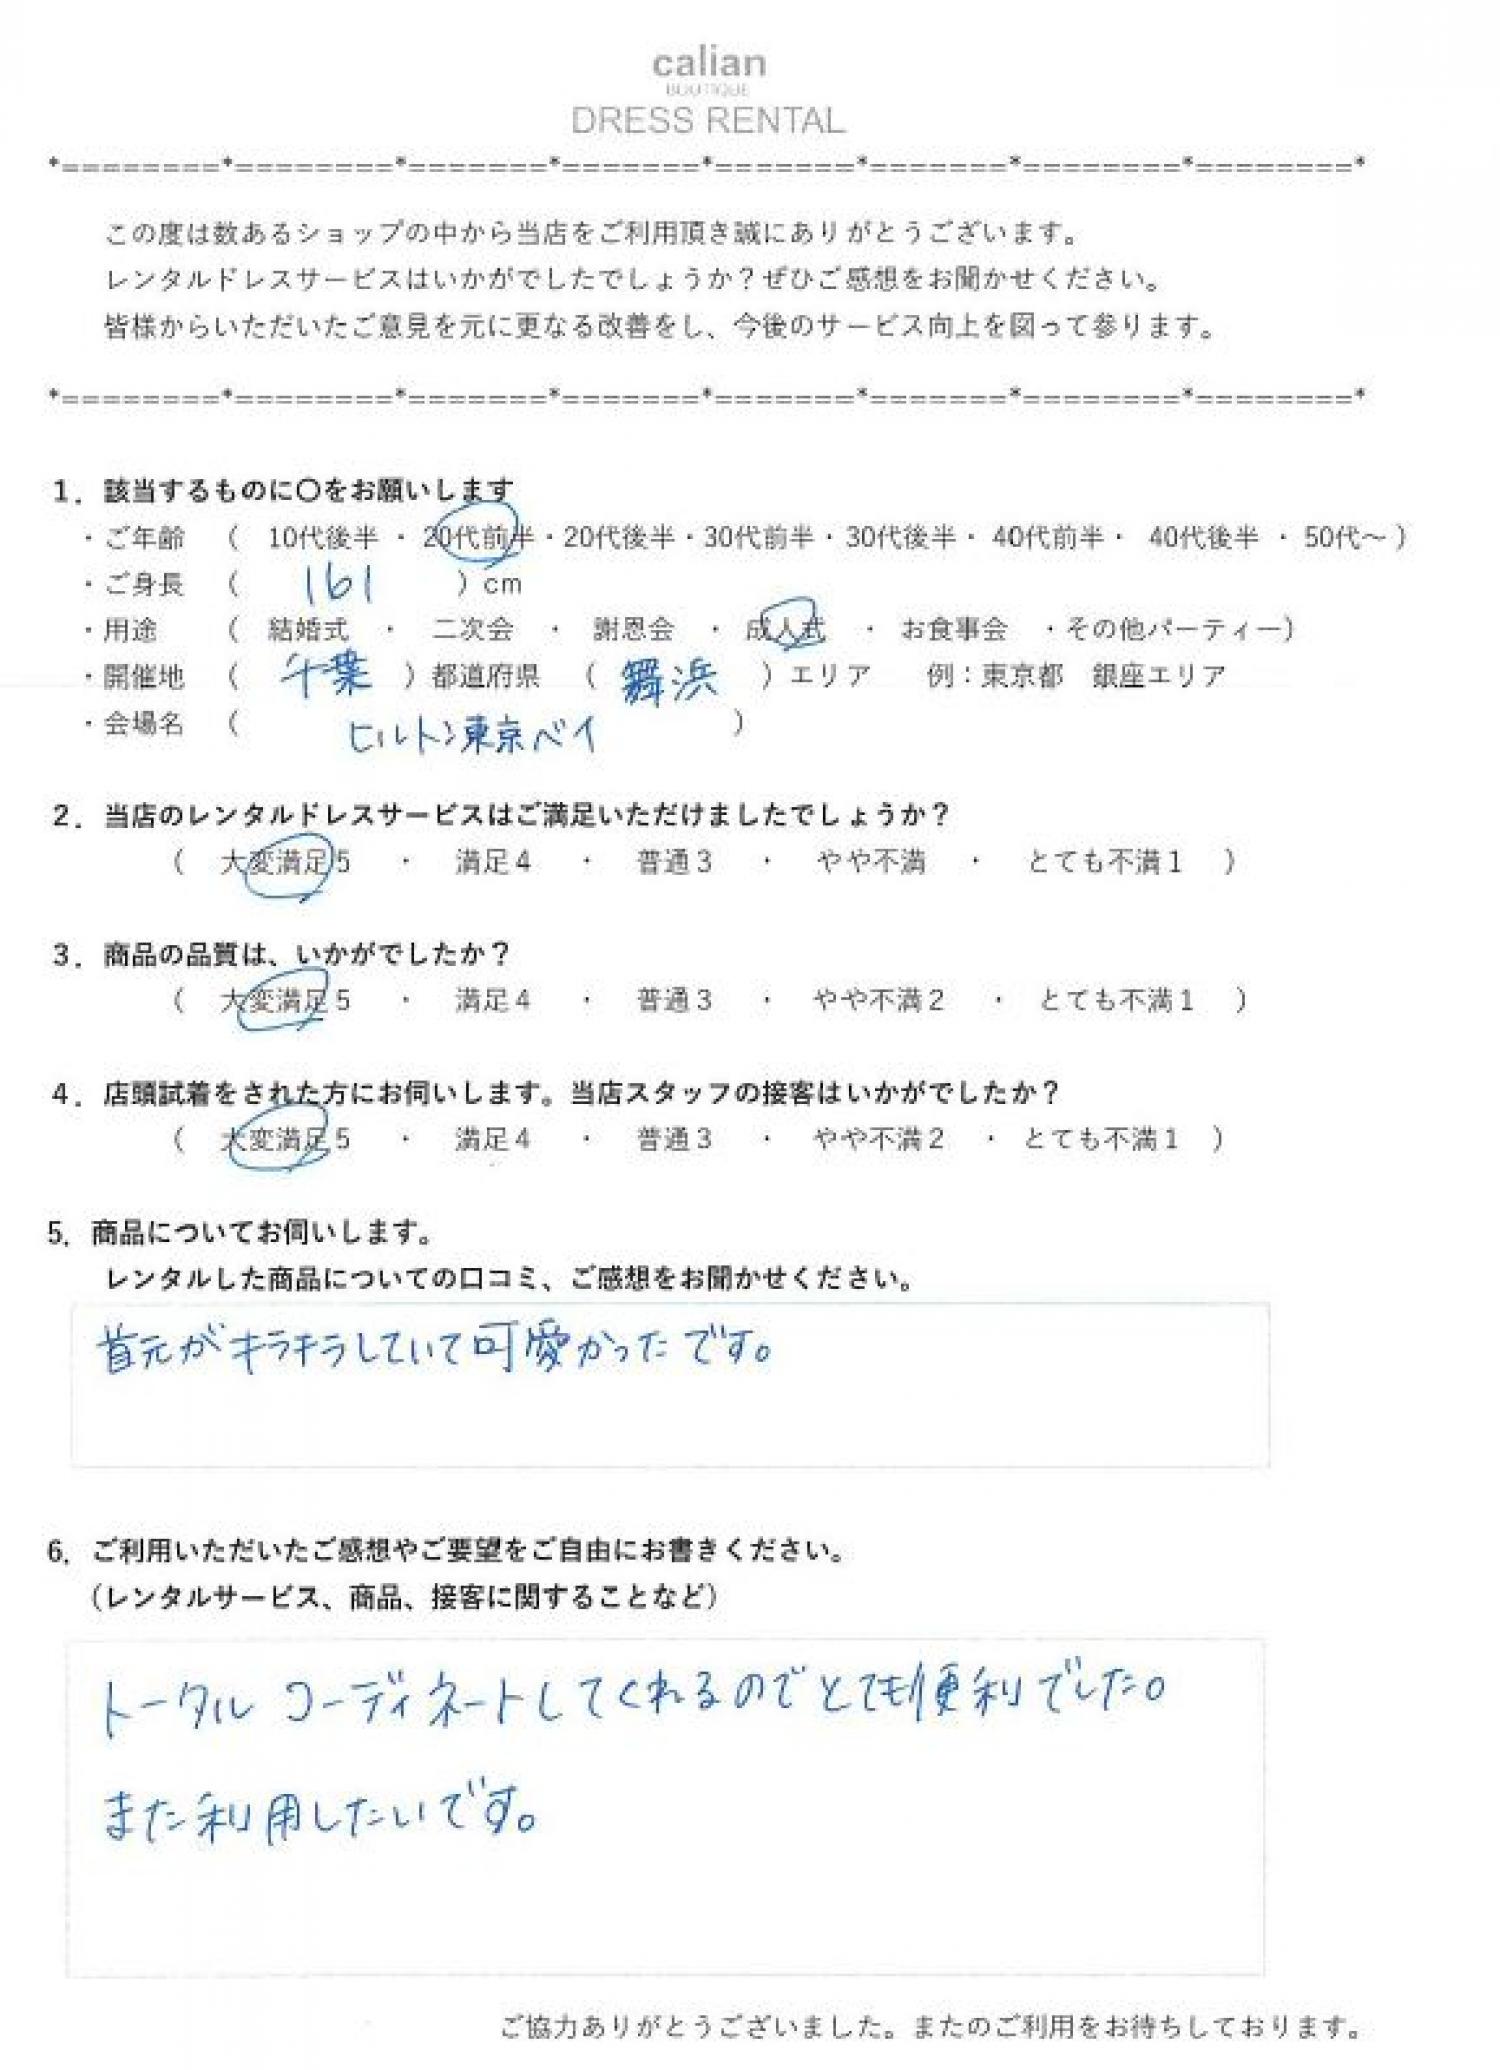 calian
BOUTIQUE
DRESS RENTAL
*========*========*=======*=======*=======*=======*========*========*
この度は数あるショップの中から当店をご利用頂き誠にありがとうございます。
レンタルドレスサービスはいかがでしたでしょうか？ぜひご感想をお聞かせください。
皆様からいただいたご意見を元に更なる改善をし、今後のサービス向上を図って参ります。
*========*========*=======*=======*=======*=======*========*========*
1．該当するものに〇をお願いします
・ご年齢 （ 10代後半 ・ 20代前半・20代後半・30代前半・30代後半・ 40代前半・ 40代後半 ・ 50代～ ）
・ご身長 （ 161 ）cm
・用途 （ 結婚式 ・ 二次会 ・ 謝恩会 ・ 成人式 ・ お食事会 ・その他パーティー）
・開催地 （ 千葉 ）都道府県 （ 舞浜 ）エリア 例：東京都 銀座エリア
・会場名 （ ヒルトン東京ベイ ）
2．当店のレンタルドレスサービスはご満足いただけましたでしょうか？
（ 大変満足5 ・ 満足4 ・ 普通3 ・ やや不満 ・ とても不満1 ）
3．商品の品質は、いかがでしたか？
（ 大変満足5 ・ 満足4 ・ 普通3 ・ やや不満2 ・ とても不満1 ）
4．店頭試着をされた方にお伺いします。当店スタッフの接客はいかがでしたか？
（ 大変満足5 ・ 満足4 ・ 普通3 ・ やや不満2 ・ とても不満1 ）
5．商品についてお伺いします。
レンタルした商品についての口コミ、ご感想をお聞かせください。
首元がキラキラしていて可愛かったです。
6．ご利用いただいたご感想やご要望をご自由にお書きください。
（レンタルサービス、商品、接客に関することなど）
トータルコーディネートしてくれるのでとても便利でした。
また利用したいです。
ご協力ありがとうございました。またのご利用をお待ちしております。